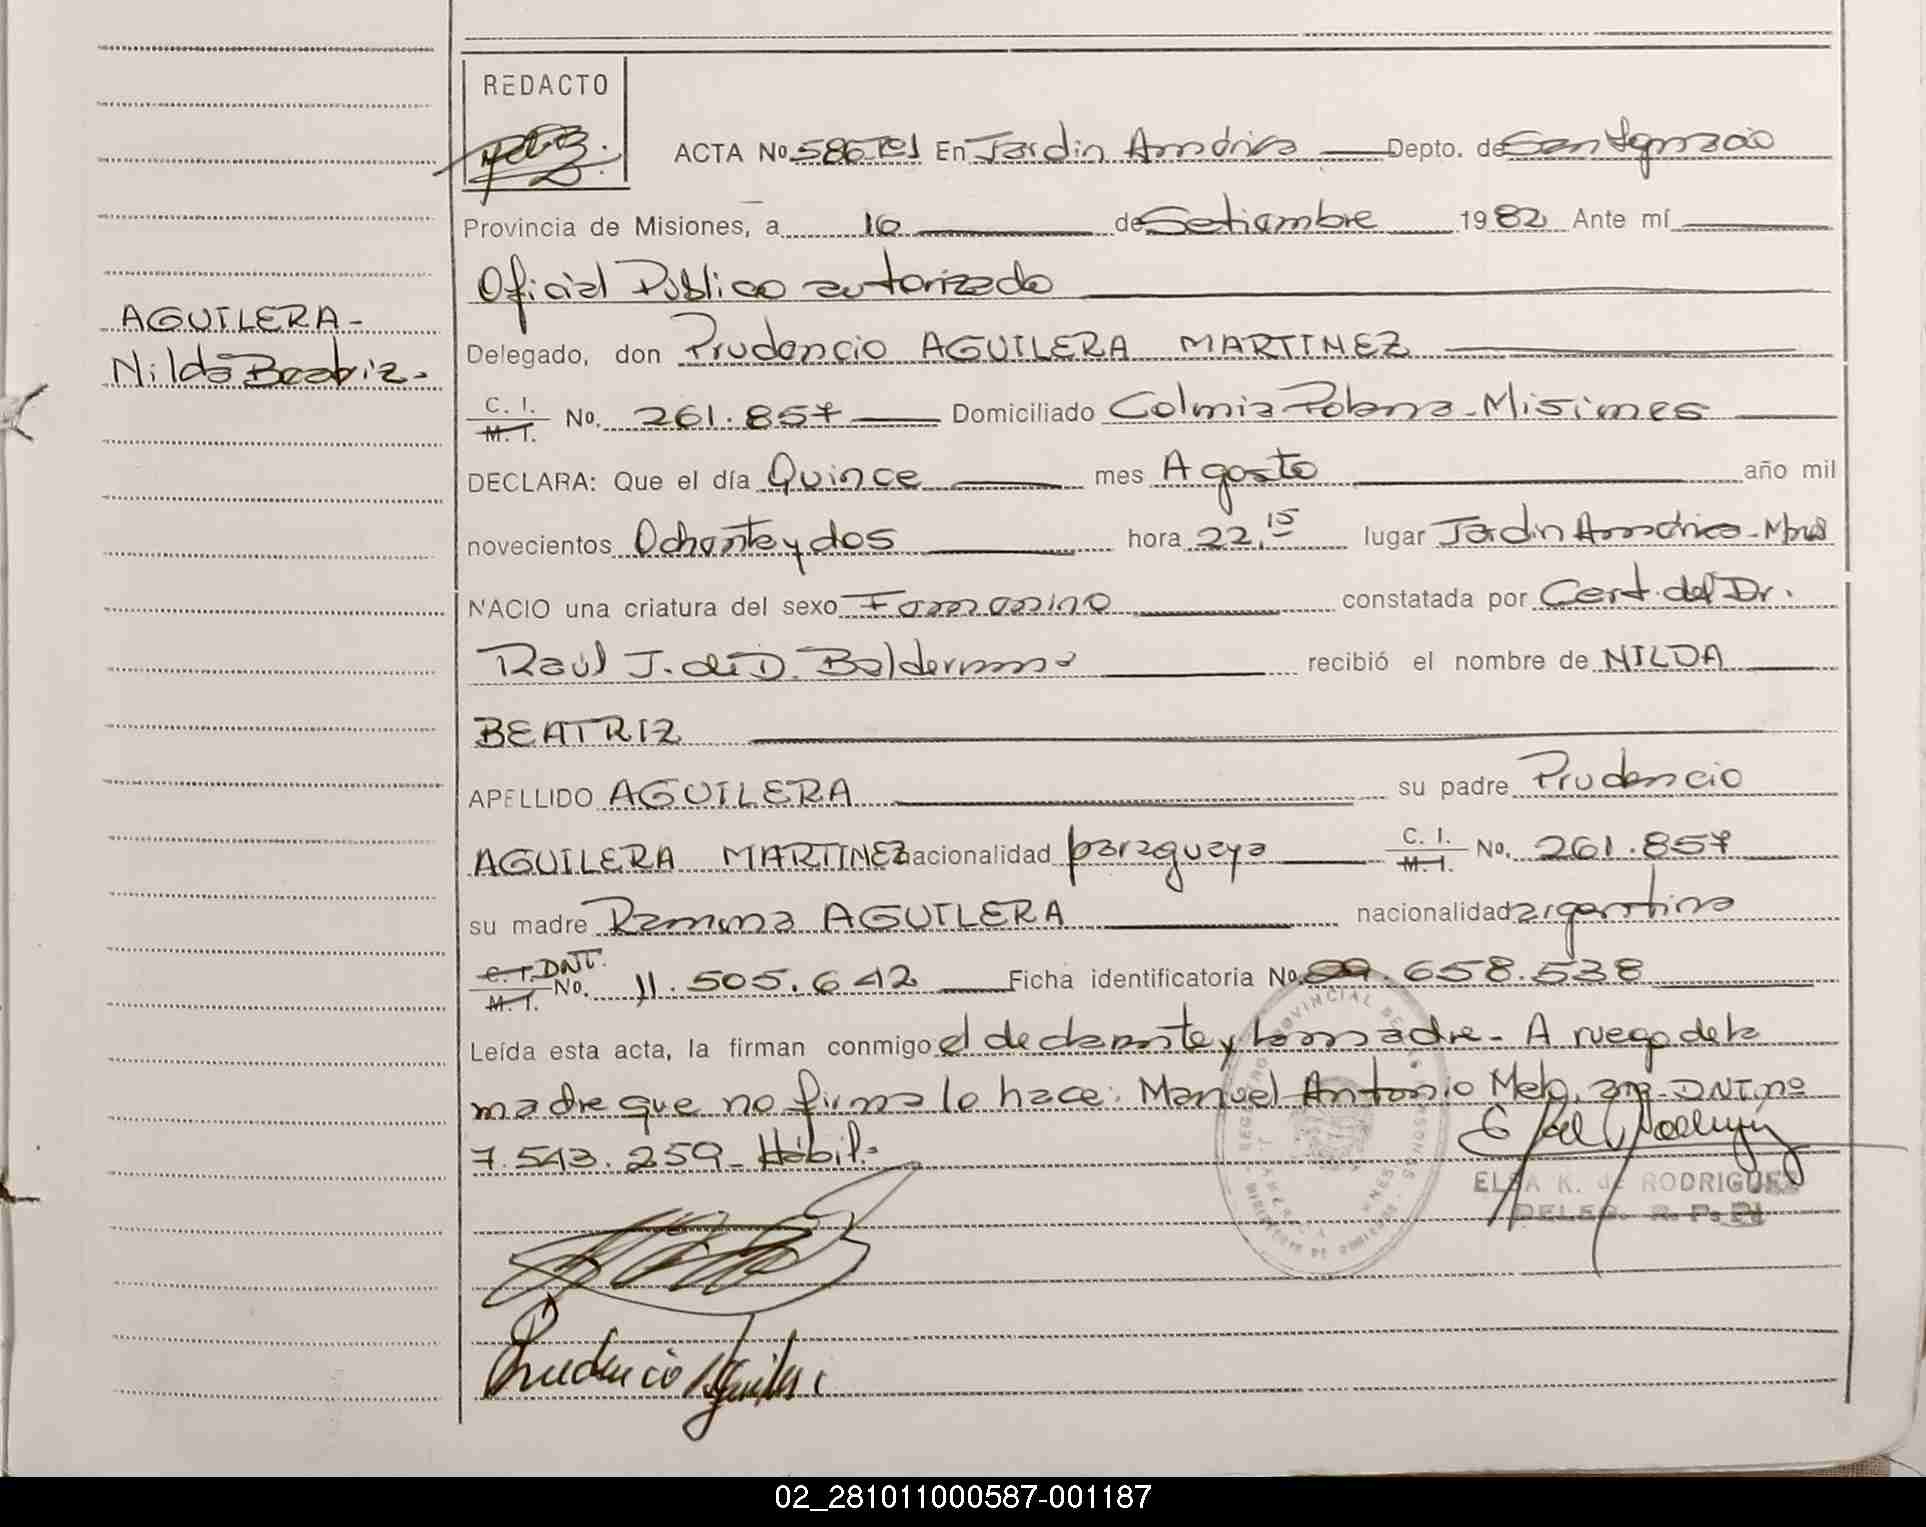 REDACTO
ACTA No. 586 Tº1 En Jardin América Depto. de San Ignacio
Provincia de Misiones, a 16 de Setiembre 1982 Ante mí
Oficial Público autorizado
AGUILERA-
Nilda Beatriz.-
Delegado, don Prudencio AGUILERA MARTINEZ
C. I. M. I. No. 261.857 Domiciliado Colonia Polana - Misiones
DECLARA: Que el día Quince mes Agosto año mil
novecientos Ochenta y dos hora 22,15 lugar Jardin América - Mnes
NACIO una criatura del sexo Femenino constatada por Cert. del Dr.
Raúl J. de D. recibió el nombre de NILDA
BEATRIZ
APELLIDO AGUILERA su padre Prudencio
AGUILERA MARTINEZ nacionalidad paraguaya C. I. M. I. No. 261.857
su madre Ramona AGUILERA nacionalidad argentina
C. I. DNI. M. I. No. 11.505.642 Ficha identificatoria No. 29.658.538
Leída esta acta, la firman conmigo el declarante y la madre - A ruego de la
madre que no firma lo hace: Manuel Antonio Melo, arg. DNI. nº
7.543.259 - Hábil.-
ELSA K. de RODRIGUEZ
DELEG. R. P.
Prudencio Aguilera
02_281011000587-001187